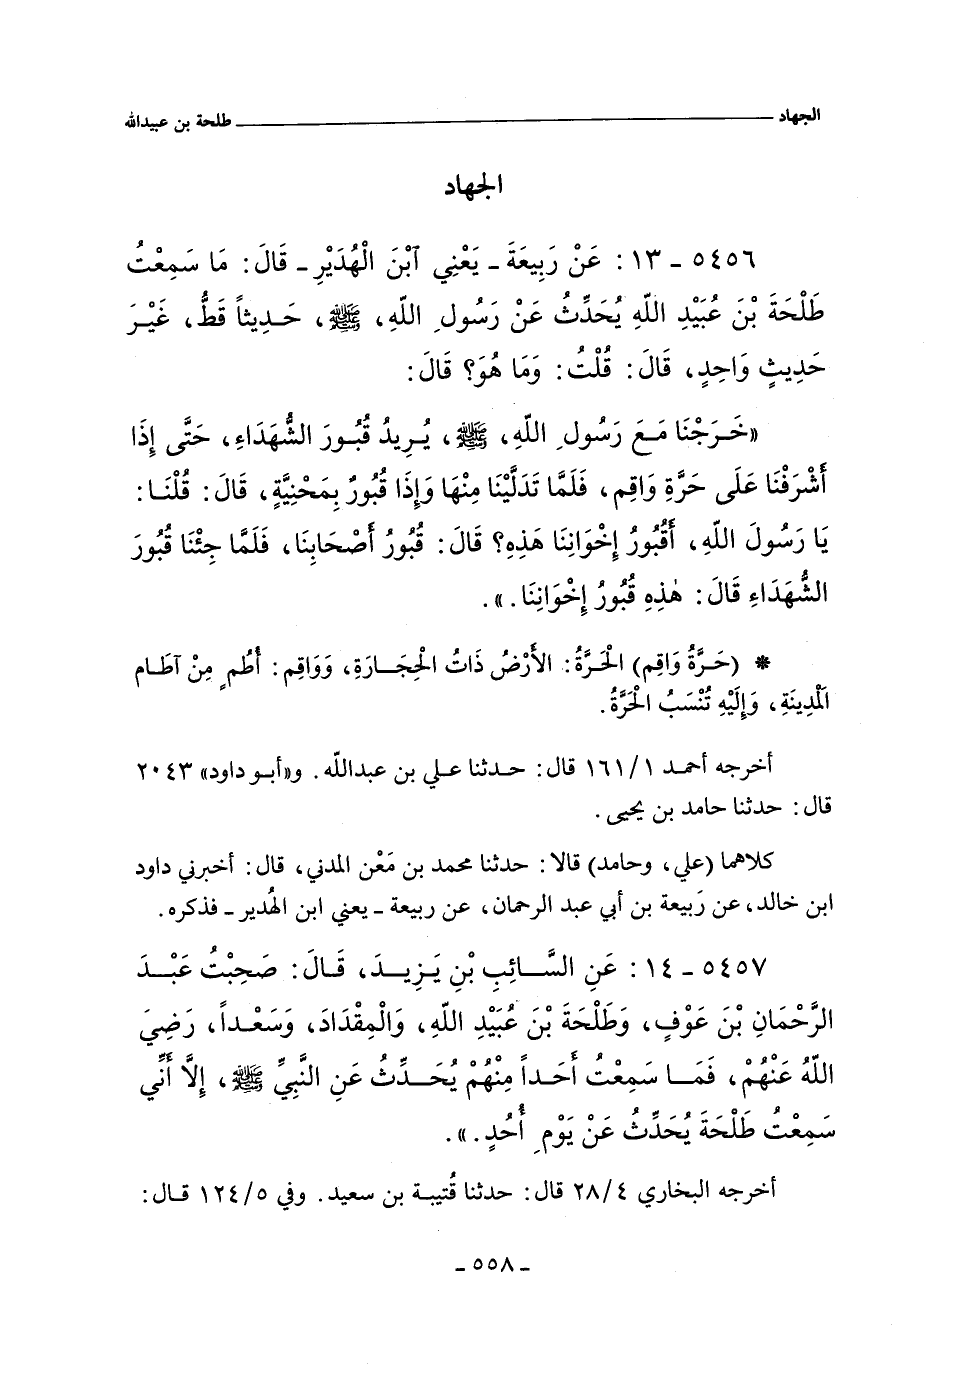 الجهاد ــــــــ طلحة بن عبيدالله
الجهاد
٥٤٥٦ - ١٣ : عَنْ رَبِيعَةَ - يَعْنِي آبْنَ الْهُدَيْرِ - قَالَ : مَا سَمِعْتُ
طَلْحَةَ بْنَ عُبَيْدِ اللهِ يُحَدِّثُ عَنْ رَسُولِ اللهِ ، ﷺ ، حَدِيثاً قَطُّ ، غَيْرَ
حَدِيثٍ وَاحِدٍ ، قَالَ : قُلْتُ : وَمَا هُوَ؟ قَالَ :
«خَرَجْنَا مَعَ رَسُولِ اللهِ ، ﷺ ، يُرِيدُ قُبُورَ الشُّهَدَاءِ ، حَتَّى إِذَا
أَشْرَفْنَا عَلَى حَرَّةِ وَاقِمٍ ، فَلَمَّا تَدَلَّيْنَا مِنْهَا وَإِذَا قُبُورٌ بِمَحْنِيَّةٍ ، قَالَ : قُلْنَا :
يَا رَسُولَ اللهِ ، أَقُبُورُ إِخْوَانِنَا هَذِهِ؟ قَالَ : قُبُورُ أَصْحَابِنَا ، فَلَمَّا جِئْنَا قُبُورَ
الشُّهَدَاءِ قَالَ : هٰذِهِ قُبُورُ إِخْوَانِنَا .» .
* (حَرَّةُ وَاقِمٍ) الْحَرَّةُ : الأَرْضُ ذَاتُ الْحِجَارَةِ ، وَوَاقِم : أُطُمٍ مِنْ آطَامِ
الْمَدِينَةِ ، وَإِلَيْهِ تُنْسَبُ الْحَرَّةُ .
أخرجه أحمد ١٦١/١ قال : حدثنا علي بن عبدالله . و«أبو داود» ٢٠٤٣
قال : حدثنا حامد بن يحيى .
كلاهما (علي ، وحامد) قالا : حدثنا محمد بن مَعْن المدني ، قال : أخبرني داود
ابن خالد ، عن رَبيعة بن أبي عبد الرحمان ، عن ربيعة - يعني ابن الهُدير - فذكره .
٥٤٥٧ - ١٤ : عَنِ السَّائِبِ بْنِ يَزِيدَ ، قَالَ : صَحِبْتُ عَبْدَ
الرَّحْمَانِ بْنَ عَوْفٍ ، وَطَلْحَةَ بْنَ عُبَيْدِ اللهِ ، وَالْمِقْدَادَ ، وَسَعْداً ، رَضِيَ
اللهُ عَنْهُمْ ، فَمَا سَمِعْتُ أَحَداً مِنْهُمْ يُحَدِّثُ عَنِ النَّبِيِّ ﷺ ، إِلَّا أَنِّي
سَمِعْتُ طَلْحَةَ يُحَدِّثُ عَنْ يَوْمِ أُحُدٍ .» .
أخرجه البخاري ٢٨/٤ قال : حدثنا قُتيبة بن سعيد . وفي ١٢٤/٥ قال :
- ٥٥٨ -